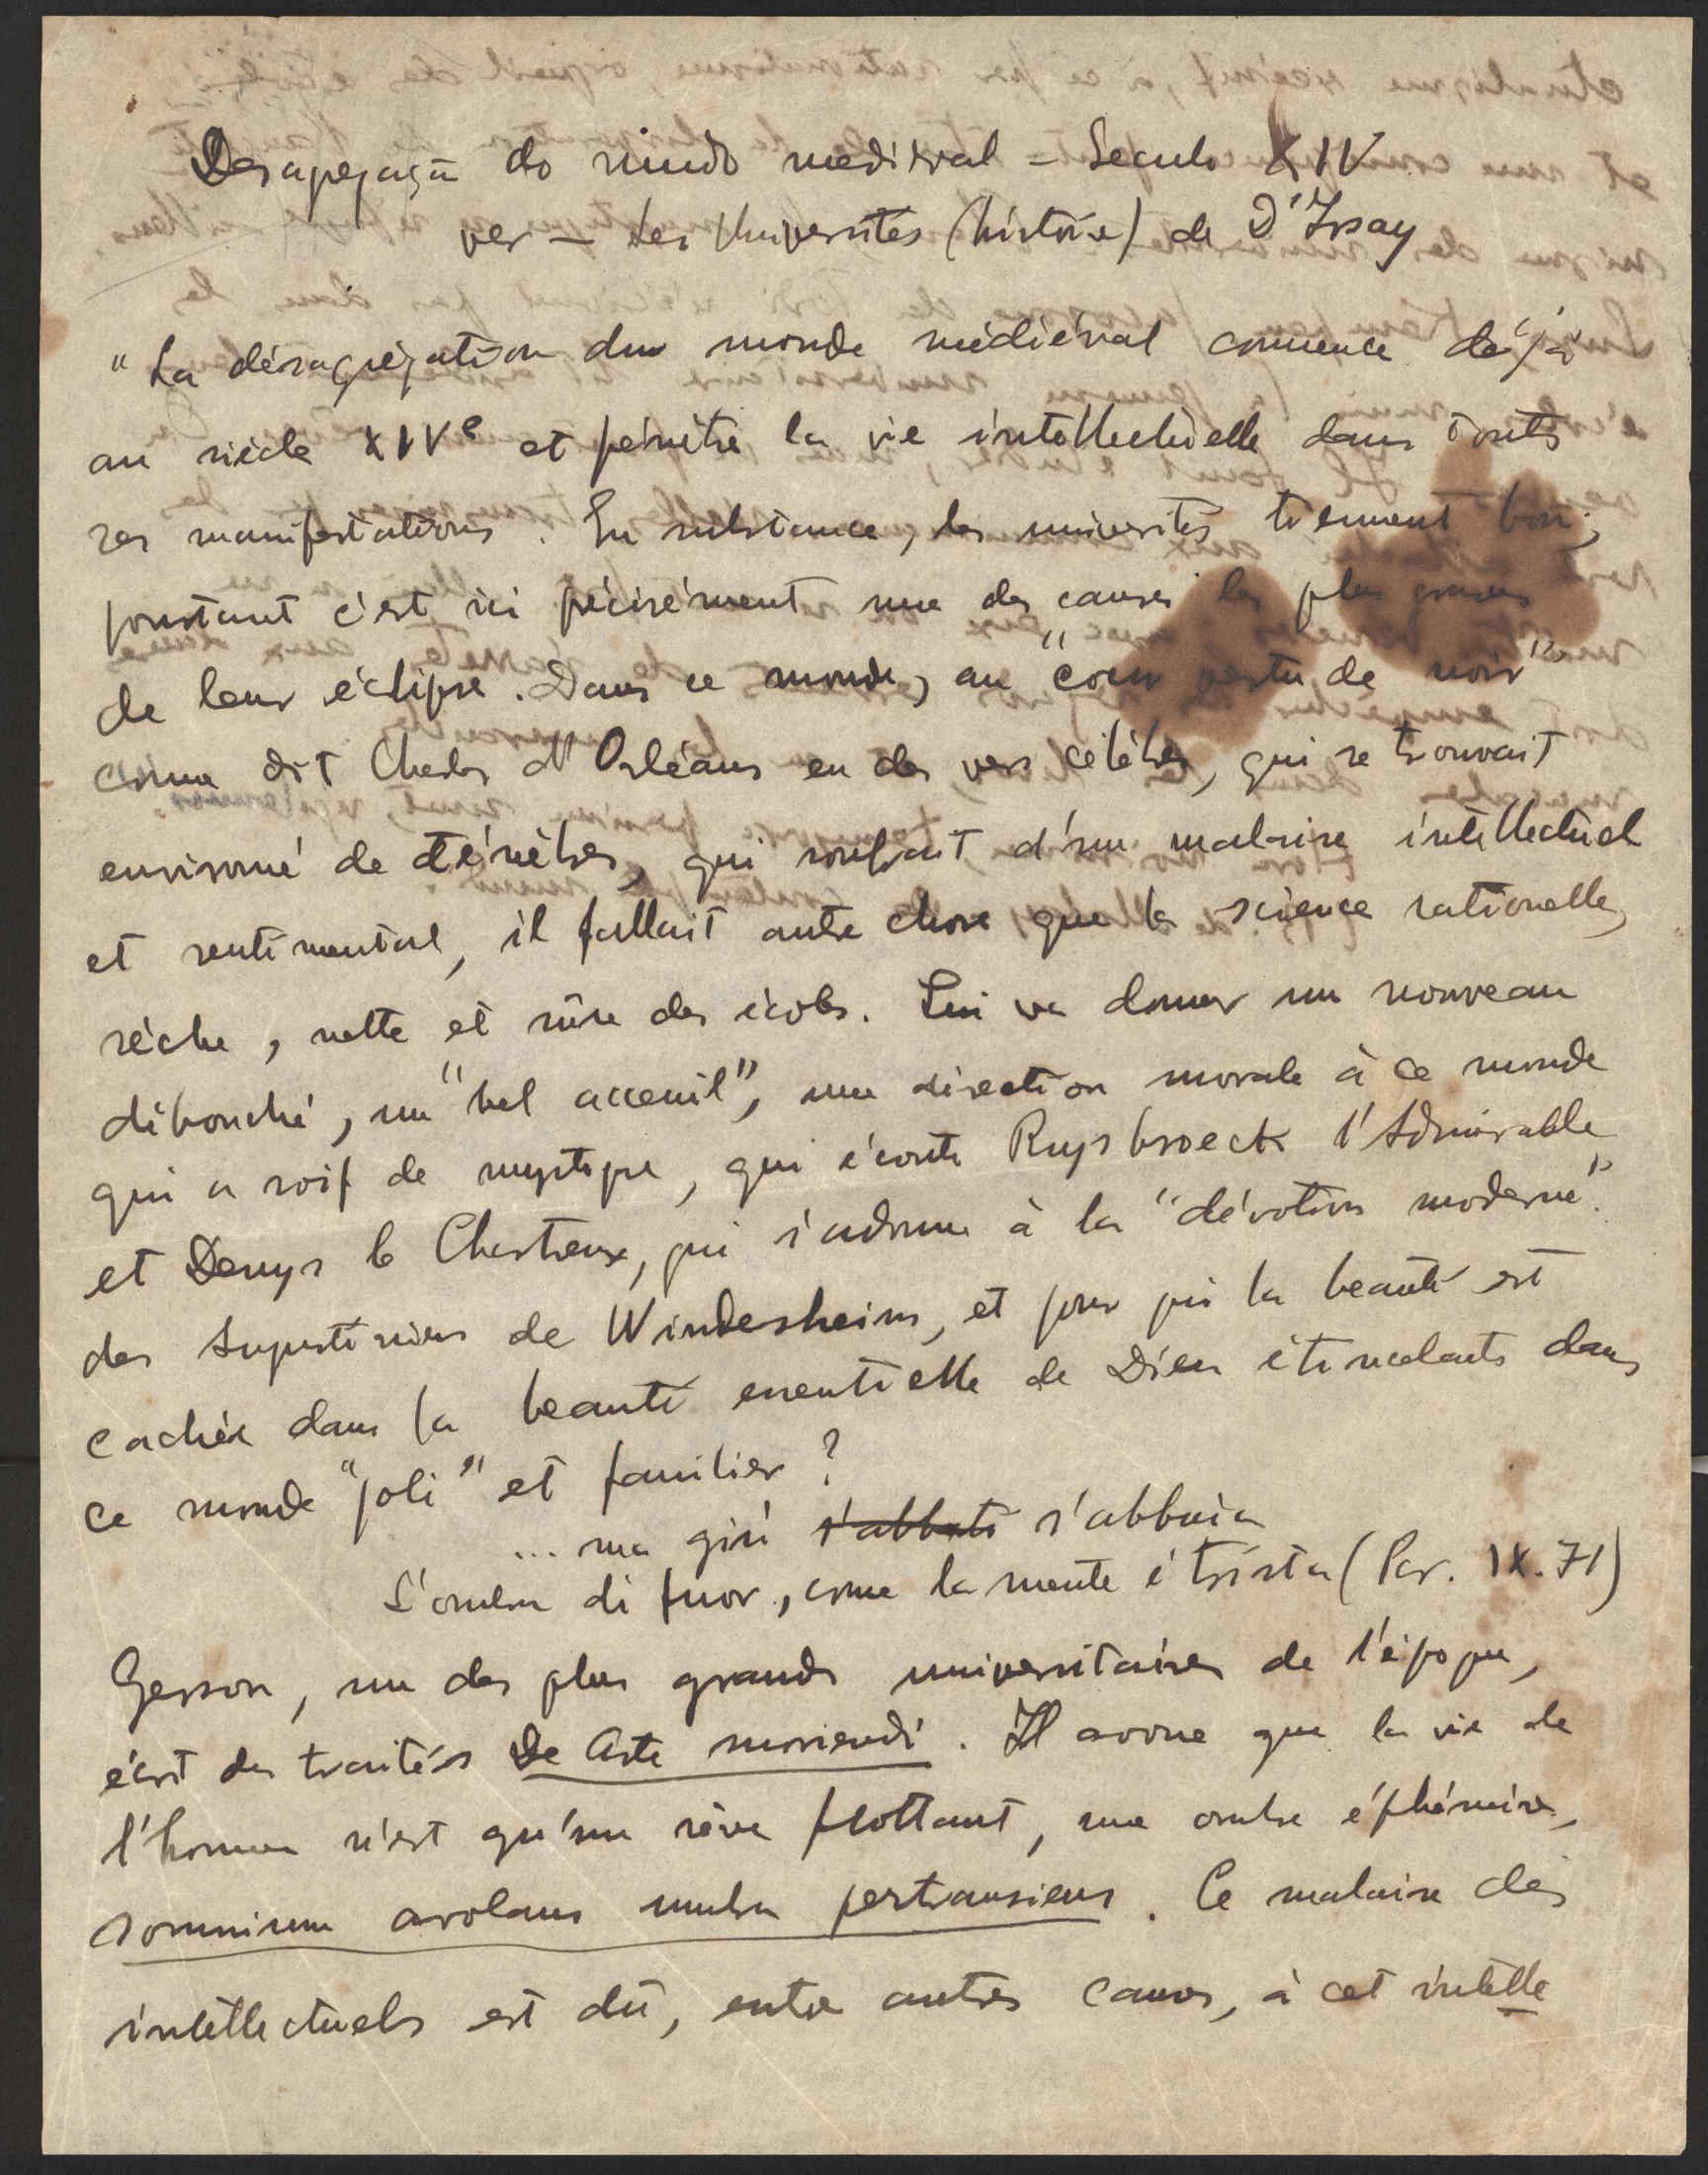 Desagregação do mundo medieval = Seculo XIV
ver — Les Universités (histoire) de D'Irsay
"La désagrégation du monde médiéval commence déjà
au siècle XIVe et pénètre la vie intellectuelle dans toutes
ses manifestations. En substance, les universités tiennent bon;
pourtant c'est ici précisément une des causes les plus graves
de leur éclipse. Dans ce monde, au "coeur vestu de noir"
comme dit Charles d'Orléans en des vers célèbres, qui se trouvait
environné de ténèbres, qui souffrait d'un malaise intellectuel
et sentimental, il fallait autre chose que la science rationelle,
sèche, nette et sûre des écoles. Qui va donner un nouveau
débouché, un "bel acceuil", une direction morale à ce monde
qui a soif de mystique, qui écoute Ruysbroeck l'Admirable
et Denys le Chartreux, qui s'adonne à la "dévotion moderne".
des Augustiniens de Windesheim, et pour qui la beauté est
cachée dans la beauté essentielle de Dieu étincelante dans
ce monde "joli" et familier?
... ma giú s'abbuti s'abbuia
L'ombra di fuor, come la mente é trista (Par. IX. 71)
Gerson, un des plus grands universitaires de l'époque,
écrit des traités De Arte moriendi. Il avoue que la vie de
l'homme n'est qu'un rêve flottant, une ombre éphémère,
somnium avolans umbra pertransiens. Ce malaise des
intellectuels est dû, entre autres causes, à cet intelle